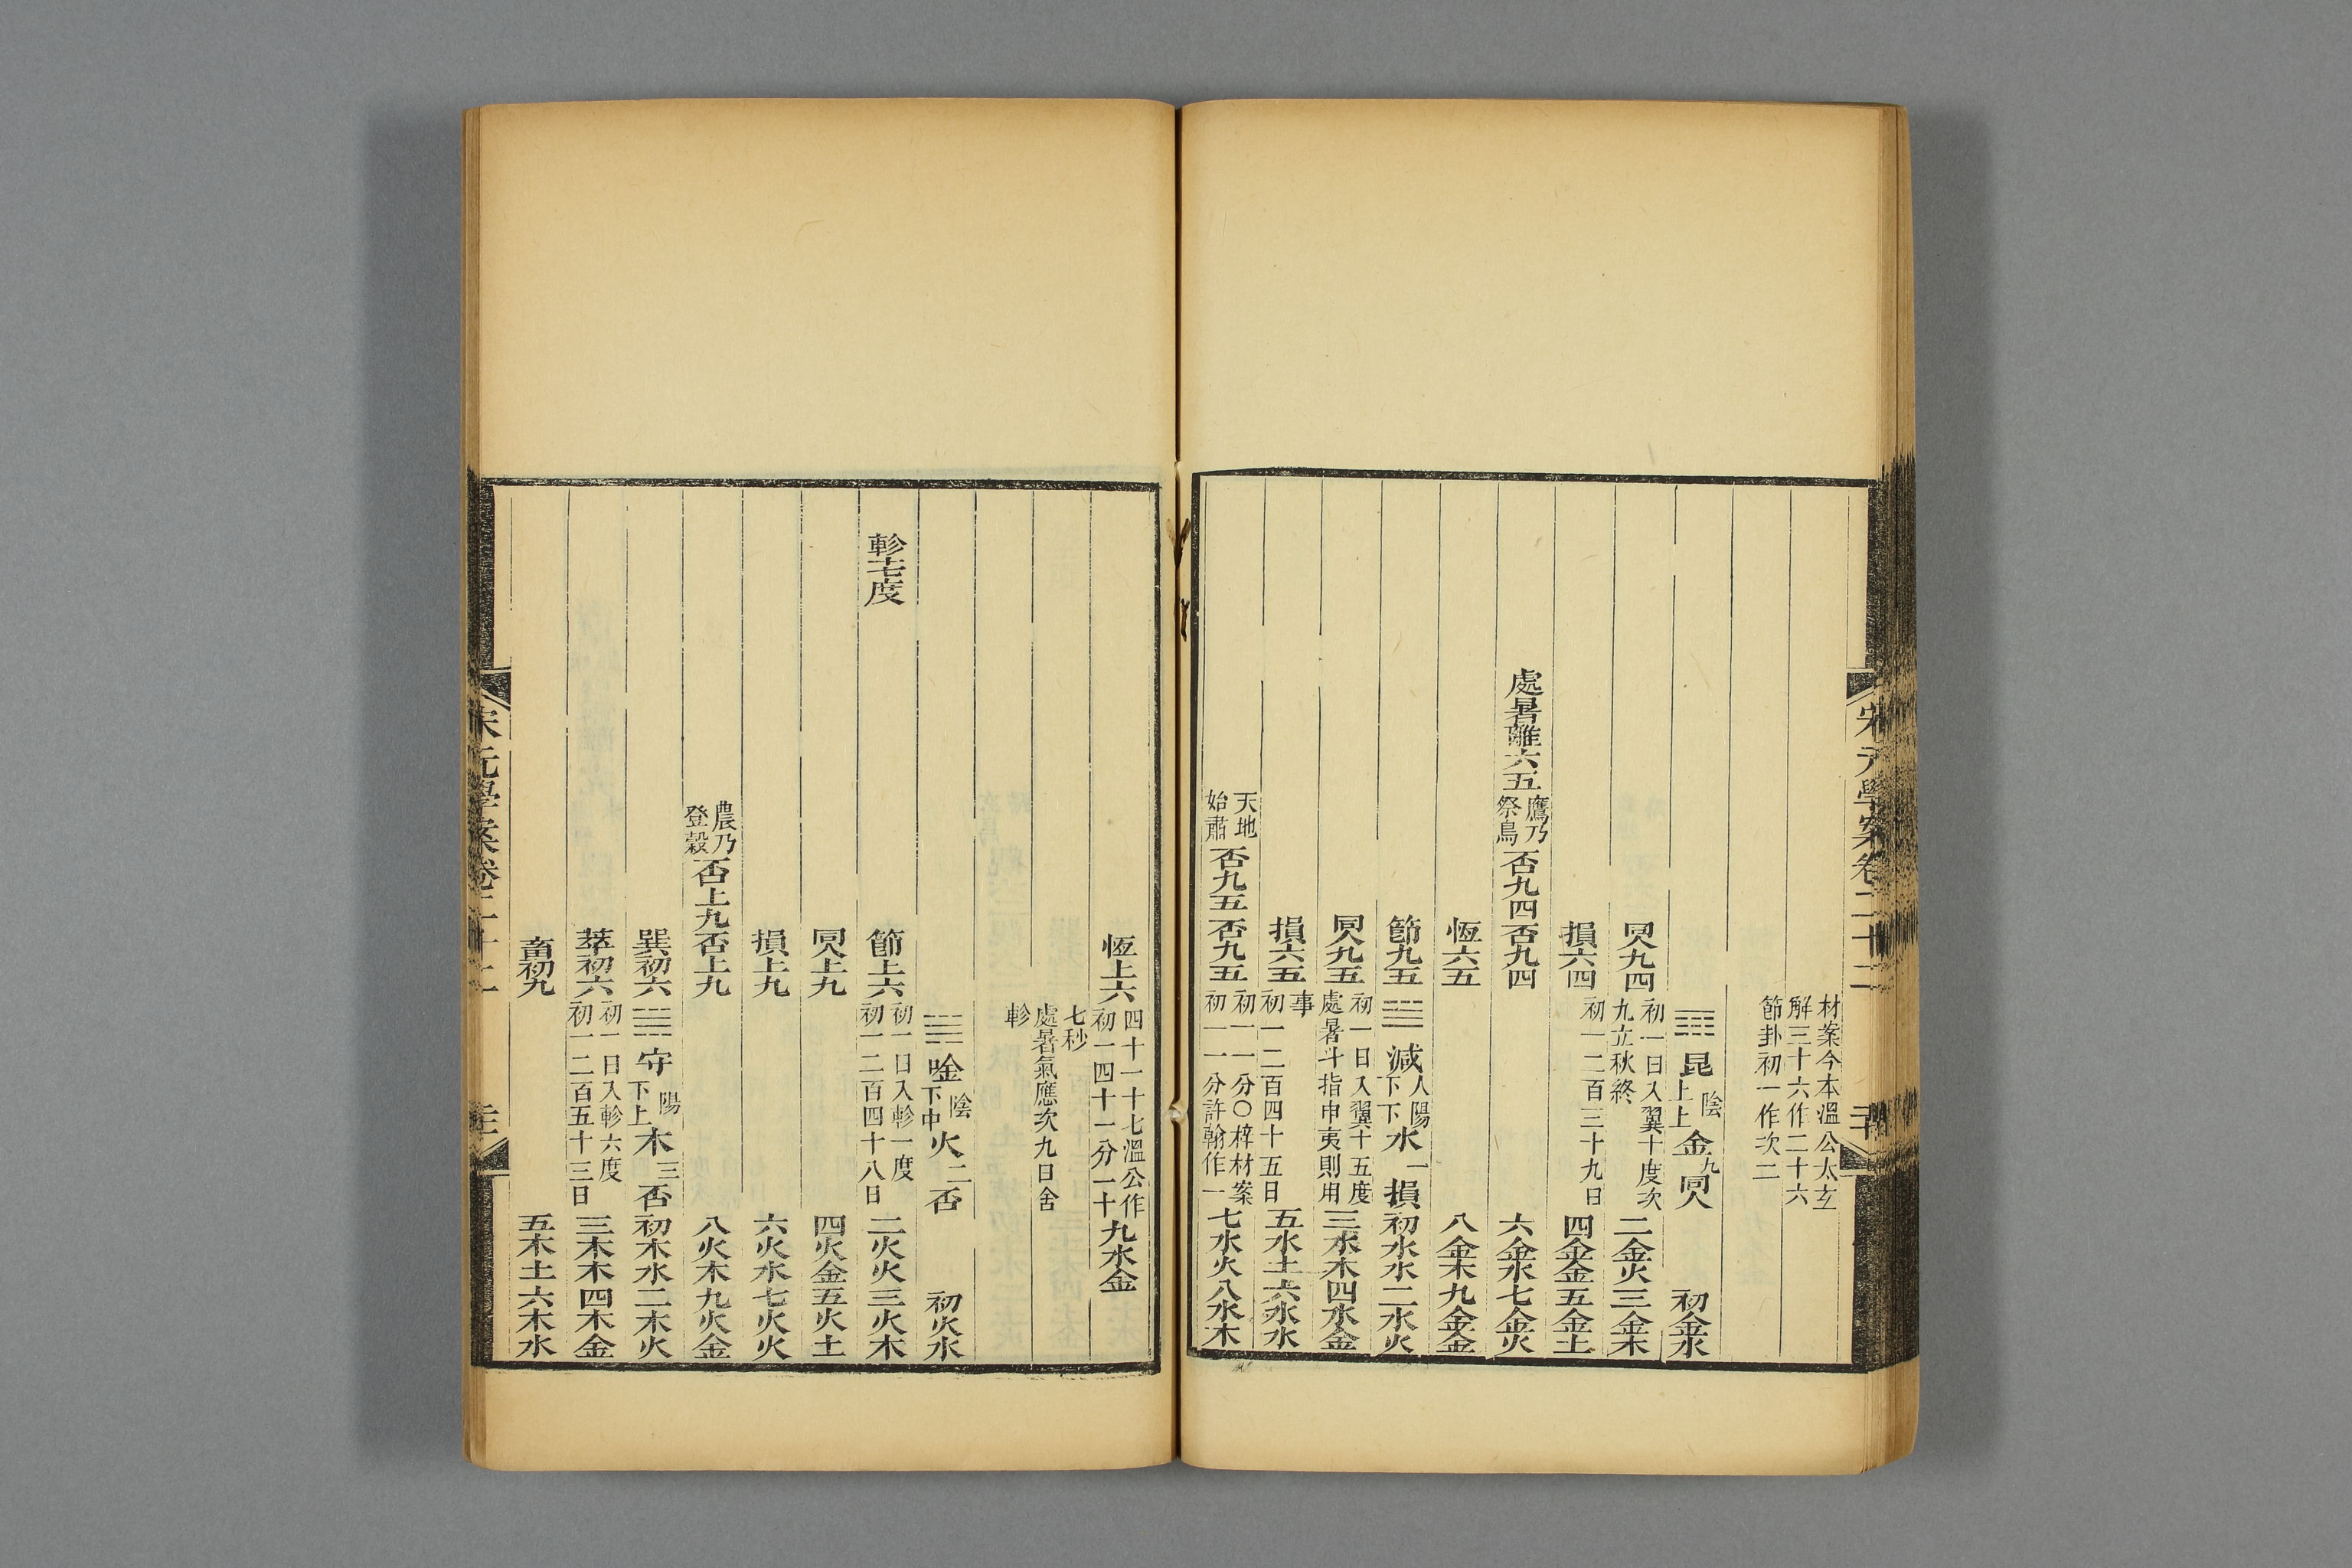 宋元學案卷二十二
材案今本溫公太玄
解三十六作二十六
節卦初一作次二
昆 陰 上上 金 九 同人 初金水
同人九四 初一日入翼十度次 九立秋終 二金火三金木
損六四 初一二百三十九日 四金金五金土
處暑離六五 鷹乃 祭鳥 否九四否九四 六金水七金火
恆六五 八金木九金金
節九五 減 人陽 下下 水 一 損 初水水二水火
同人九五 初一日入翼十五度 處暑斗指申夷則用 三水木四水金
損六五 事 初一二百四十五日 五水土六水水
天地 始肅 否九五否九五 初一一分〇梓材案 初一一分許翰作一 七水火八水木
恆上六 四十一十七溫公作 初一四十一分一十 九水金
七秒
處暑氣應次九日舍
軫
唫 陰 下中 火 二 否 初火水
軫十七度 節上六 初一日入軫一度 初一二百四十八日 二火火三火木
同人上九 四火金五火土
損上九 六火水七火火
農乃 登穀 否上九否上九 八火木九火金
巽初六 守 陽 下上 木 三 否 初木水二木火
萃初六 初一日入軫六度 初一二百五十三日 三木木四木金
畜初九 五木土六木水
宋元學案卷二十二